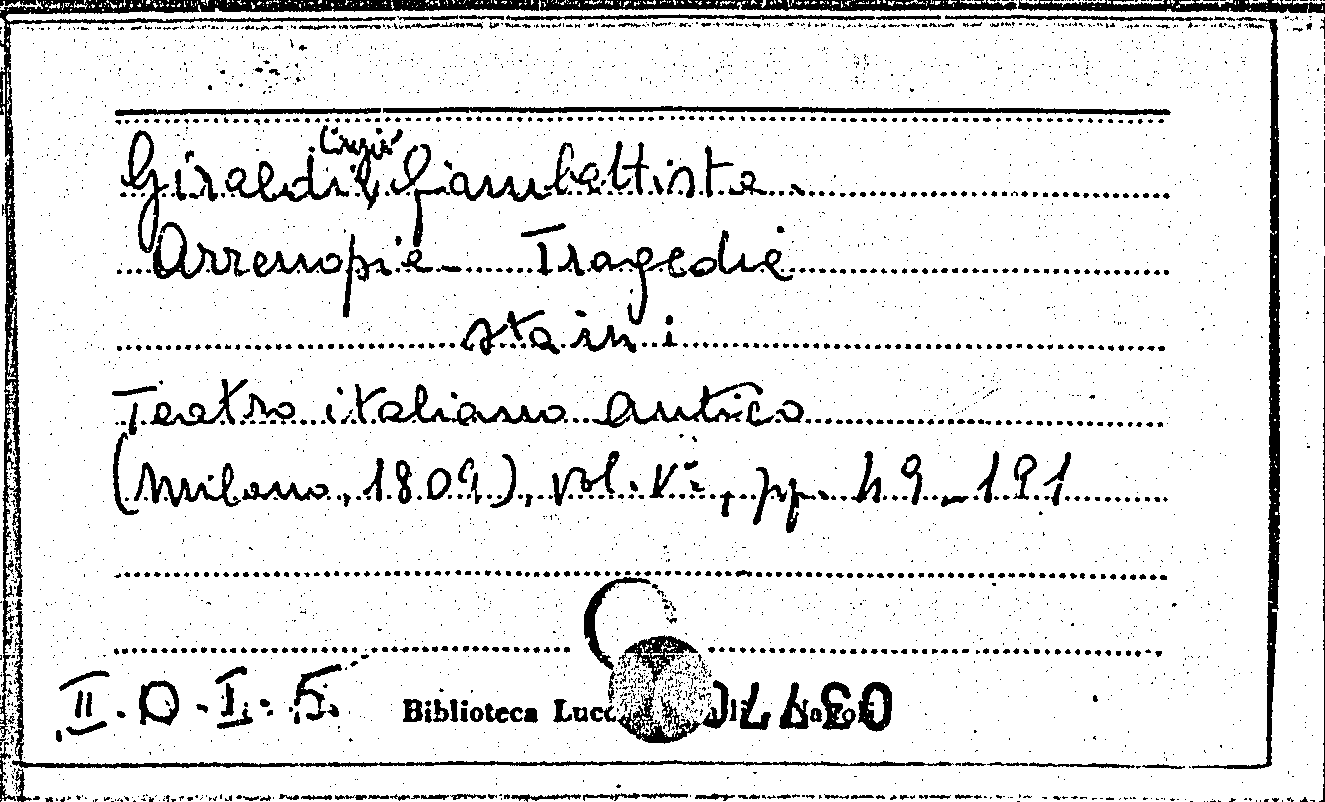 Giraldi Cinzio Giambattista
Arrenopia – Tragedia
sta in:
Teatro italiano antico
(Milano, 1809), vol. V°, pp. 49–191
II. D. I. 5.
Biblioteca